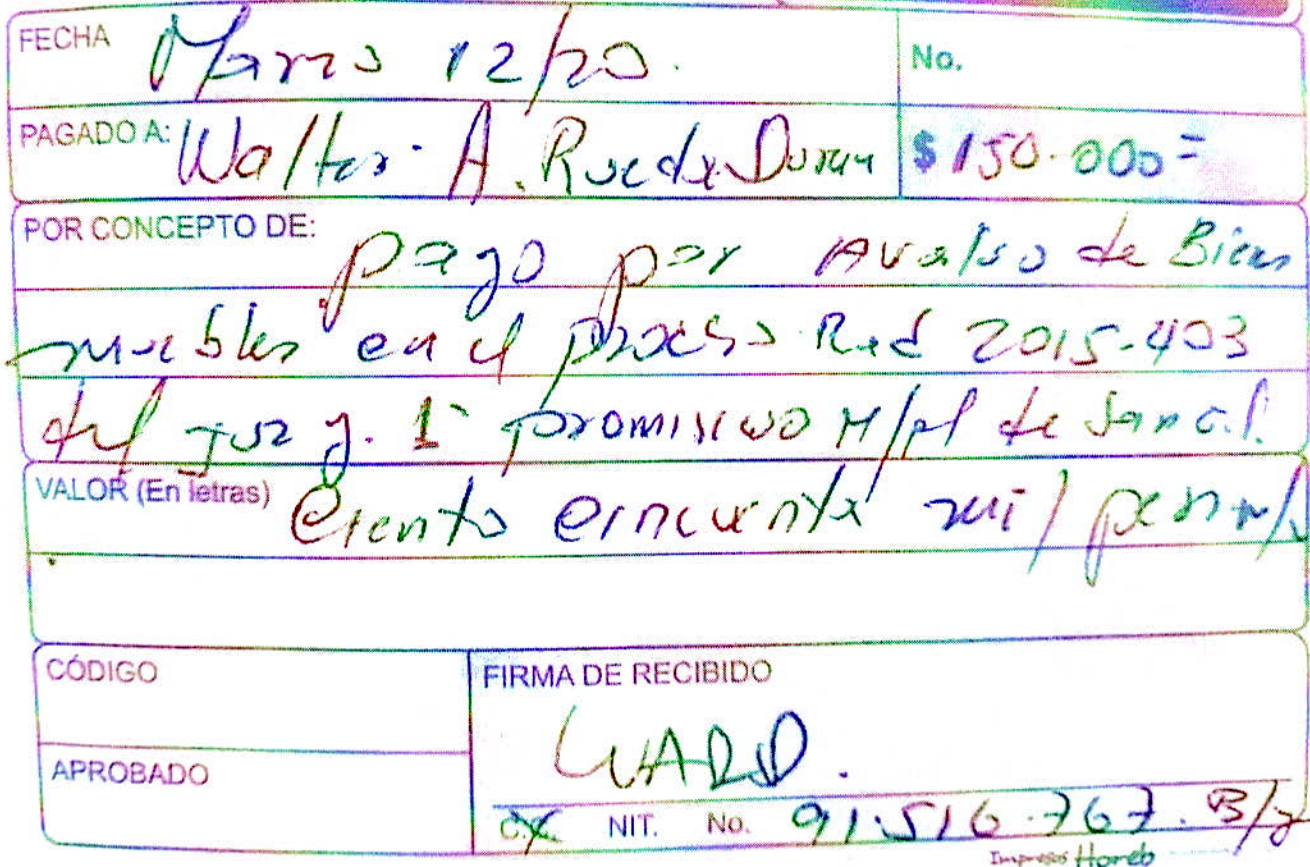 FECHA Marzo 12/20. No.
PAGADO A: Walter A. Rueda Duran $ 150.000=
POR CONCEPTO DE: pago por Avaluo de Bienes
muebles en el proceso Rad 2015-403
del Juzg. 1° promiscuo M/pl de San Gil.
VALOR (En letras) Ciento cincuenta mil pesos m/
CÓDIGO
FIRMA DE RECIBIDO
WARD.
APROBADO
C.C. NIT. No. 91.516.767. B/
Impresos Horeb